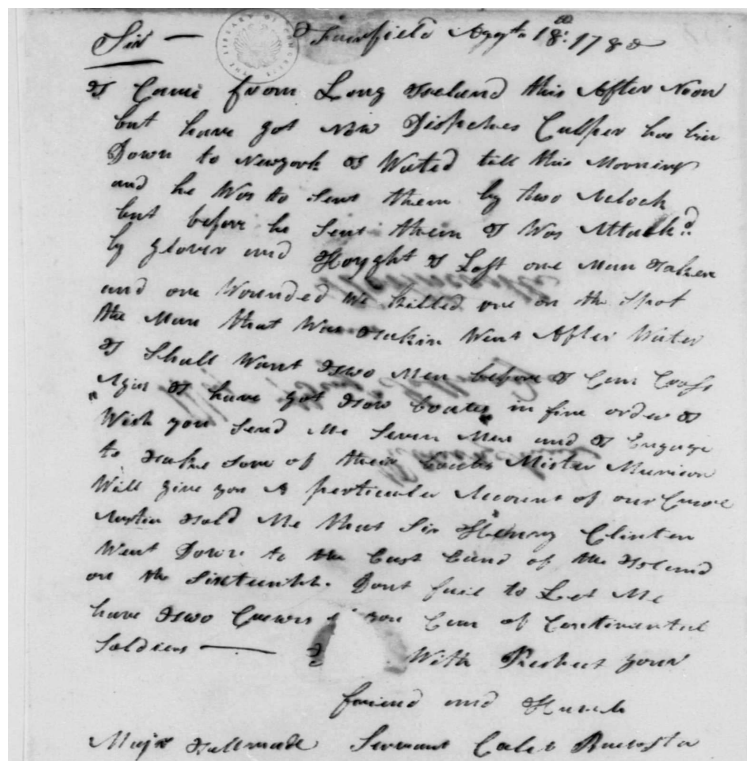 Sir — Fairfield Augt 18: 1780
I Came from Long Iseland this After Noon
but have got now Dispches Culper has bin
Down to Newyork I Wated till this Morning
and he Was to Sent them by two Aclock
but before he Sent them I Was Attackd
by glover and Hoyght I Loft one Man Taken
and one Wounded We killed one on the Spot
the Man that Was Takin Went After Water
I Shall Want Two Men before I Com Cross
Agin I have got Tow boates in fine order I
Wish you Send Me Seven Men and I Engage
to Take Some of their boats Mister Muirson
Will give you A perticular Account of our
Austin Told Me that Sir Henry Clinton
Went Down to the East End of the Iseland
on the Sixteenth. Dont fail to Let Me
have Two Crewes if you Can of Continental
Soldiers — With Respect your
friend and Humb
Majr Tallmadge Servant Caleb Brewster
THE LIBRARY OF CONGRESS